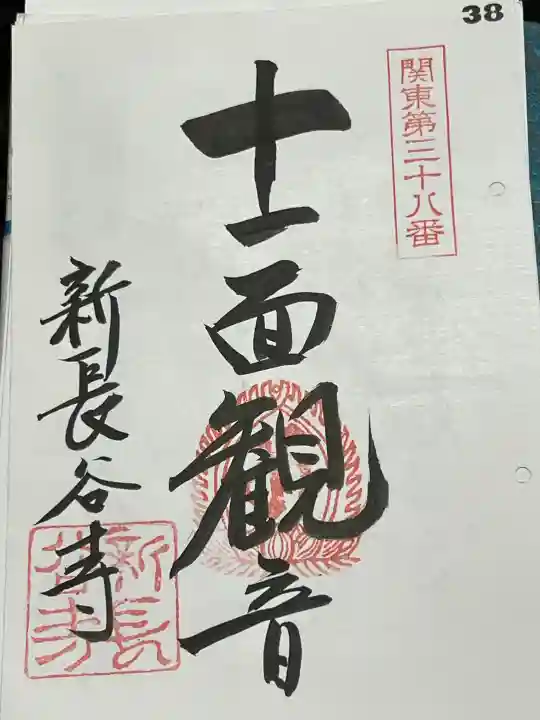 38
関東第三十八番
十一面観音
新長谷寺
新長
谷寺